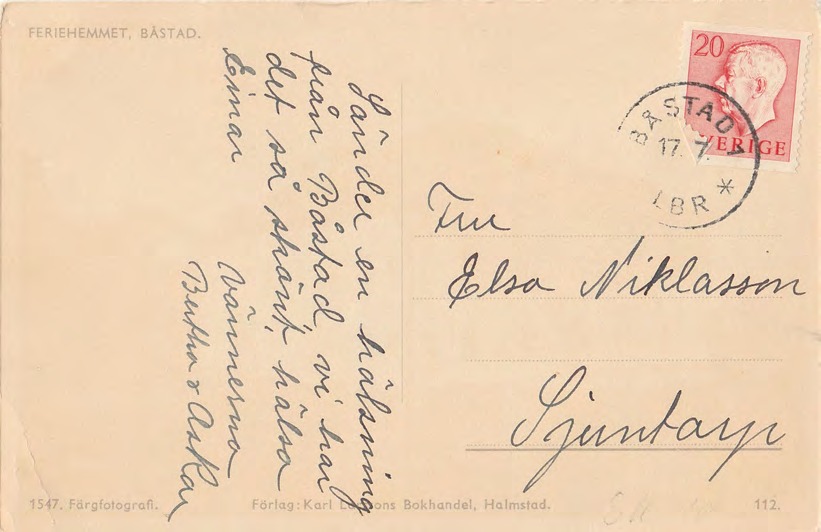 FERIEHEMMET, BÅSTAD.
Sänder en hälsning
från Båstad, vi har
det så skönt, hälsa
Einar
Vännerna
Bertha & Oskar
20
SVERIGE
BÅSTAD 1
17. 7.
LBR *
Fru
Elsa Niklasson
Sjuntorp
1547. Färgfotografi.
Förlag: Karl Bokhandel, Halmstad.
112.